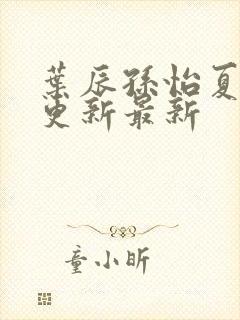 葉辰孫怡夏
更新最新
童小昕